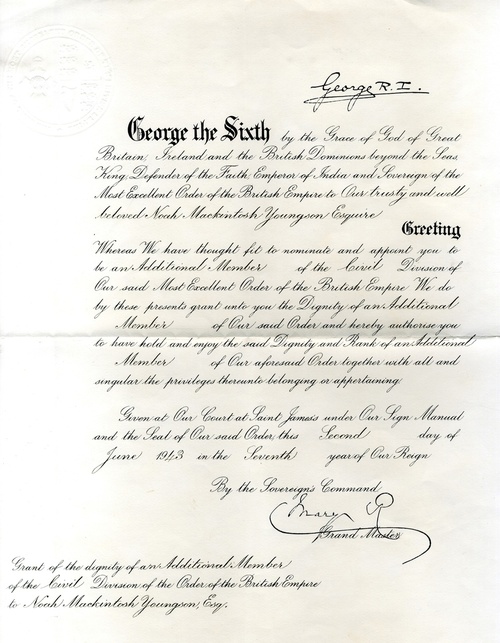 George R.I.
George the Sixth by the Grace of God of Great
Britain, Ireland and the British Dominions beyond the Seas,
King, Defender of the Faith, Emperor of India and Sovereign of the
Most Excellent Order of the British Empire to Our trusty and well
beloved Noah Mackintosh Youngson Esquire
Greeting
Whereas We have thought fit to nominate and appoint you to
be an Additional Member of the Civil Division of
Our said Most Excellent Order of the British Empire We do
by these presents grant unto you the Dignity of an Additional
Member of Our said Order and hereby authorise you
to have hold and enjoy the said Dignity and Rank of an Additional
Member of Our aforesaid Order together with all and
singular the privileges thereunto belonging or appertaining.
Given at Our Court at Saint James's under Our Sign Manual
and the Seal of Our said Order this Second day of
June 1943 in the Seventh year of Our Reign
By the Sovereign's Command,
Mary R
Grand Master
Grant of the dignity of an Additional Member
of the Civil Division of the Order of the British Empire
to Noah Mackintosh Youngson, Esq.